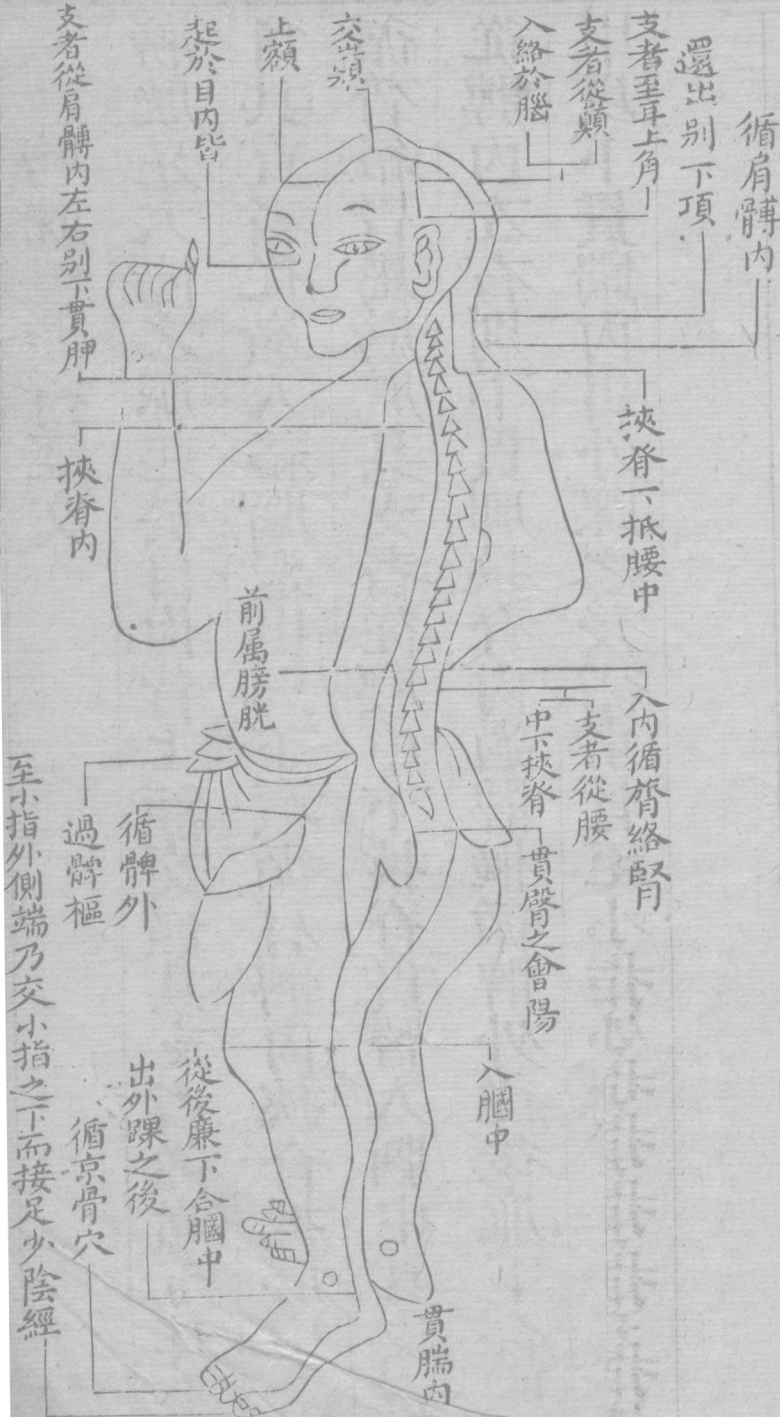 循肩髆内
還出别下項
支者至耳上角
支者從顛
入絡於腦
交巔
上額
起於目内眥
支者從肩髆内左右别下貫胛
挾脊内
挾脊下抵腰中
前属膀胱
入内循膂絡腎
支者從腰
中下挾脊
貫臀之會陽
循髀外
過髀樞
入膕中
從後廉下合膕中
出外踝之後
循京骨穴
至小指外側端乃交小指之下而接足少陰經
貫腨内